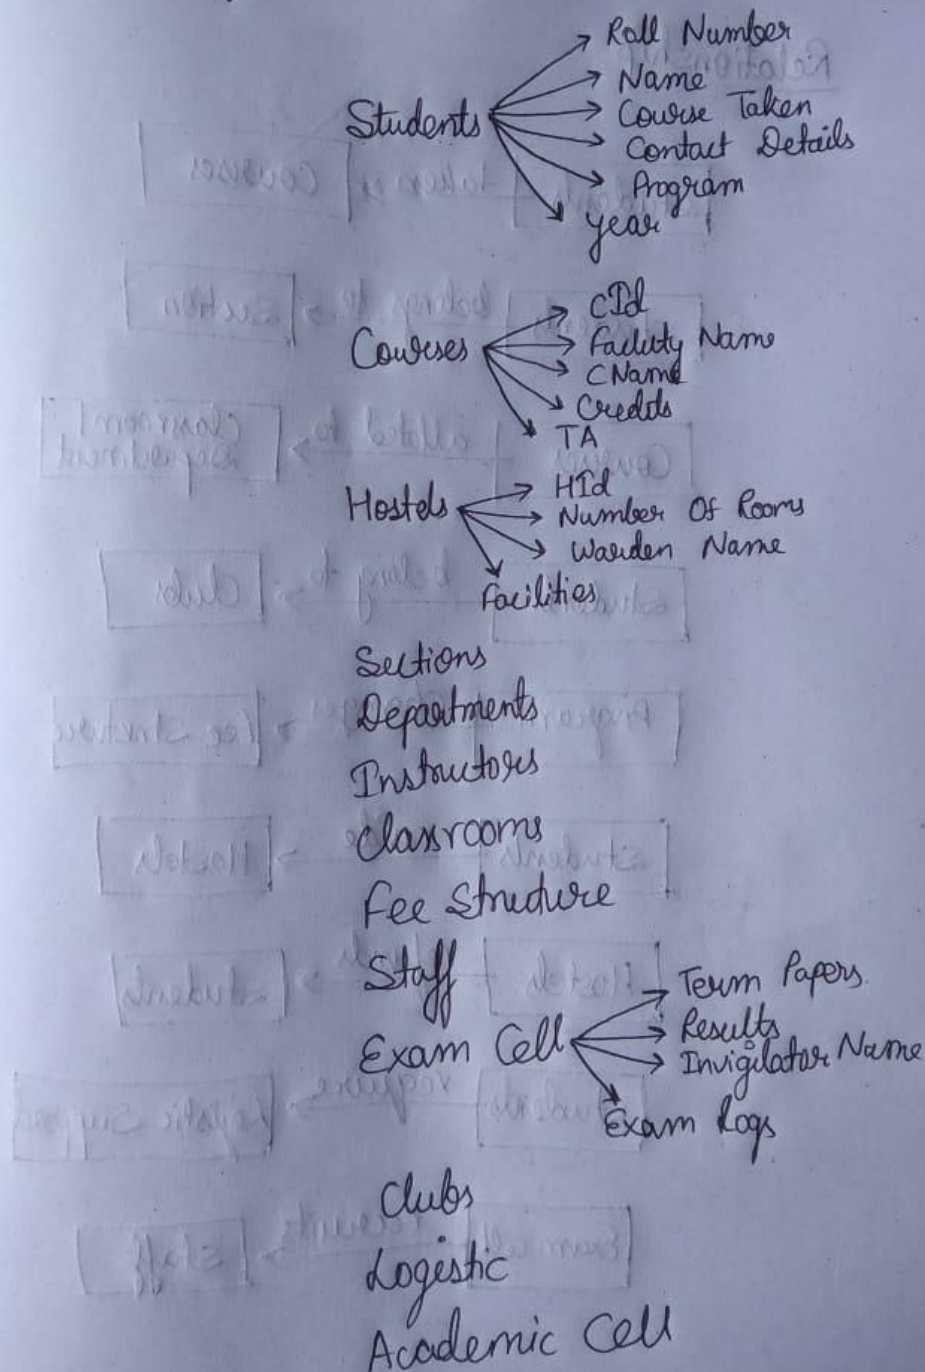 Roll Number
Name
Course Taken
Students
Contact Details
Program
year
CId
Faculty Name
Courses
CName
Credits
TA
HId
Hostels
Number Of Rooms
Warden Name
Facilities
Sections
Departments
Instructors
Classrooms
Fee Structure
Staff
Term Papers
Results
Exam Cell
Invigilator Name
Exam Logs
Clubs
Logistic
Academic Cell